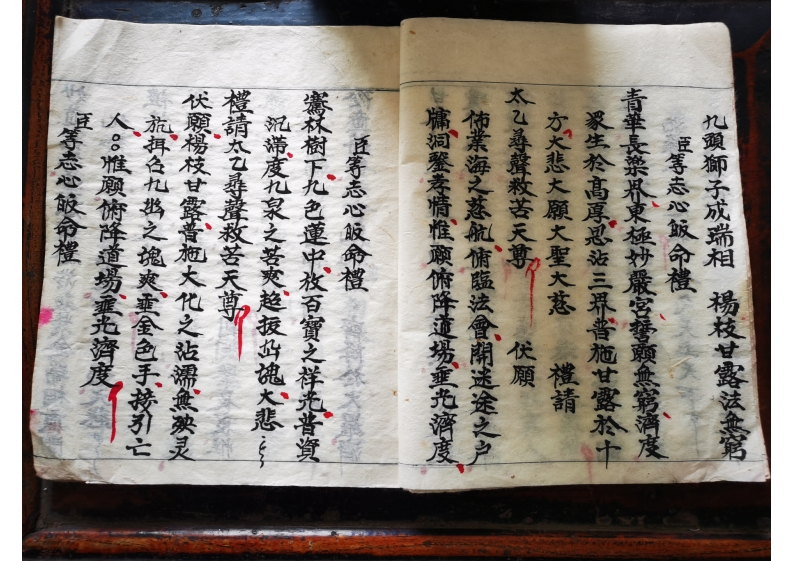 九頭獅子成瑞相　楊枝甘露法無窮
臣等志心皈命禮
青華長樂界東極妙嚴宮誓願無窮濟度
眾生於高厚恩沾三界普施甘露於十
方大悲大願大聖大慈　禮請
太乙尋聲救苦天尊　伏願
佈業海之慈航俯臨法會開迷途之户
牗洞鑒孝情惟願俯降道場垂光濟度
臣等志心皈命禮
騫林樹下九色蓮中放百寶之祥光普資
沉滯度九泉之苦爽超拔幽魂大悲
禮請太乙尋聲救苦天尊
伏願楊枝甘露普施大化之沾濡無殃灵
旐揖召九幽之魂爽垂金色手接引亡
人惟願俯降道場垂光濟度
臣等志心皈命禮